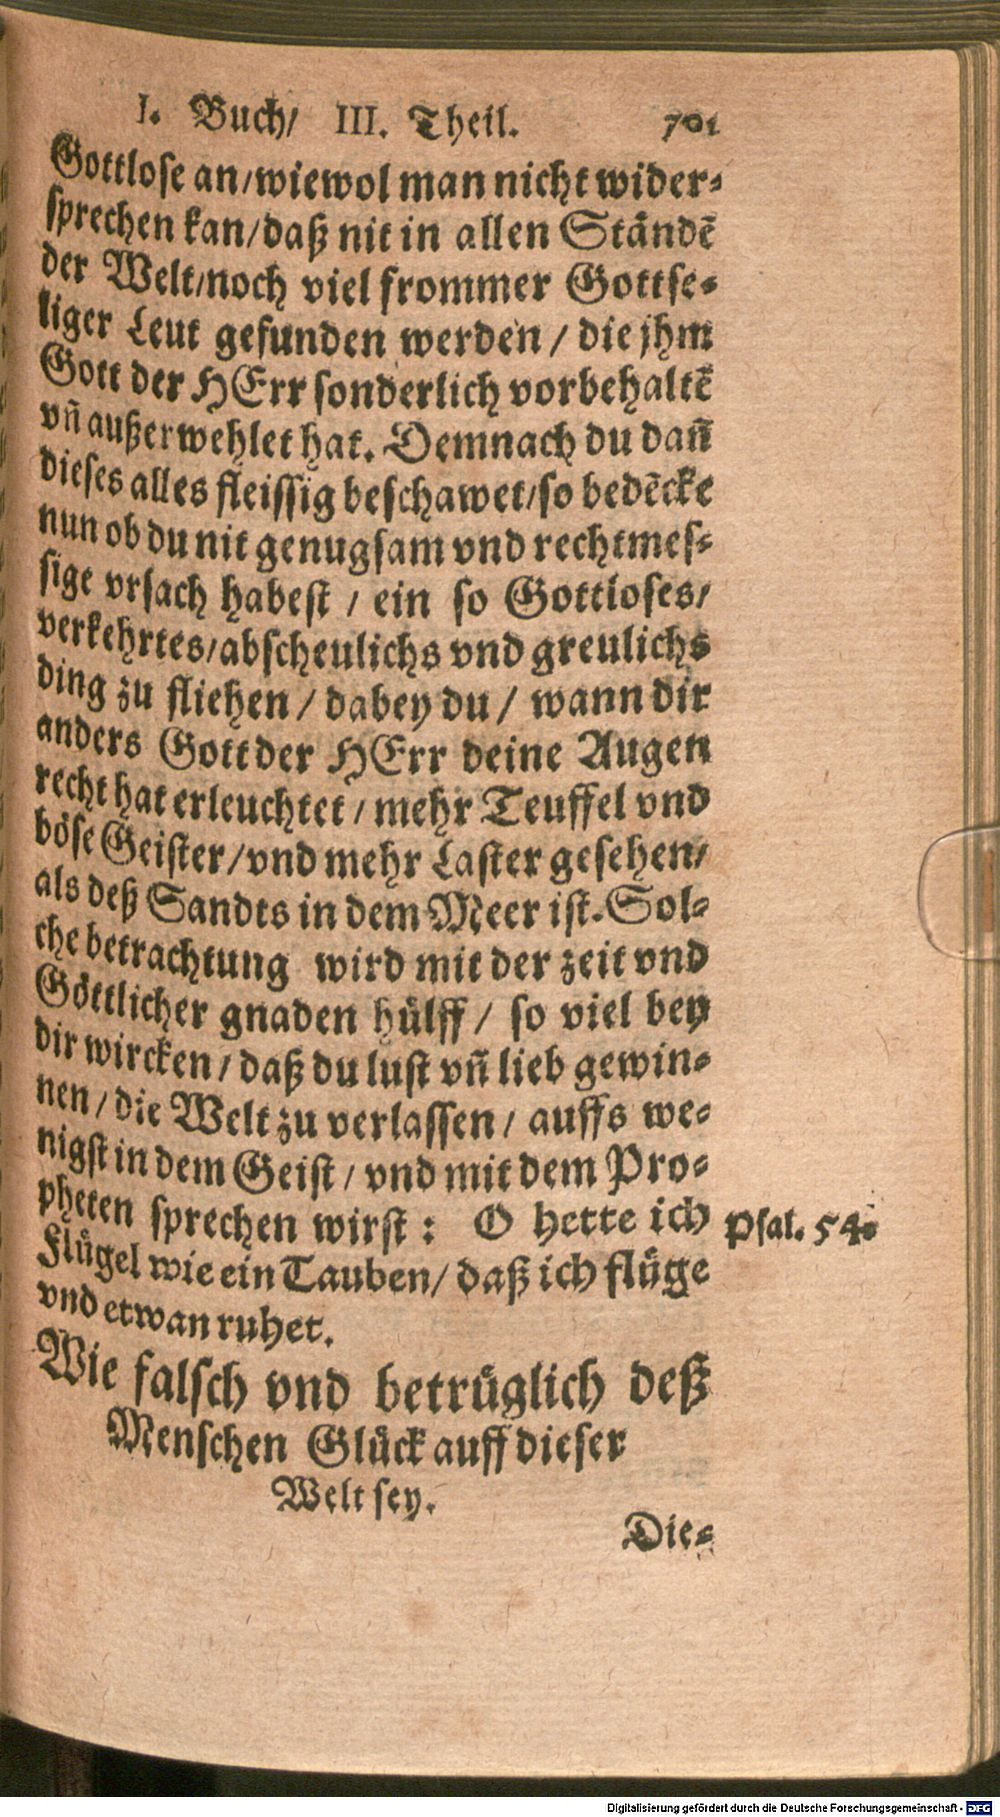 I. Buch/ III. Theil. 701
Gottlose an/wiewol man nicht wider-
sprechen kan/daß nit in allen Ständẽ
der Welt/noch viel frommer Gottse-
liger Leut gefunden werden / die jhm
Gott der HErr sonderlich vorbehaltẽ
vñ außerwehlet hat. Demnach du dañ
dieses alles fleissig beschawet/so bedẽcke
nun ob du nit genugsam vnd rechtmes-
sige vrsach habest / ein so Gottloses/
verkehrtes/abscheulichs vnd greulichs
ding zu fliehen / dabey du / wann dir
anders Gott der HErr deine Augen
recht hat erleuchtet / mehr Teuffel vnd
böse Geister/vnd mehr Laster gesehen/
als deß Sandts in dem Meer ist. Sol-
che betrachtung wird mit der zeit vnd
Göttlicher gnaden hülff / so viel bey
dir wircken / daß du lust vñ lieb gewin-
nen / die Welt zu verlassen / auffs we-
nigst in dem Geist / vnd mit dem Pro-
pheten sprechen wirst : O hette ich
Psal. 54.
Flügel wie ein Tauben/ daß ich flüge
vnd etwan ruhet.
Wie falsch vnd betrüglich deß
Menschen Glück auff dieser
Welt sey.
Die-
Digitalisierung gefördert durch die Deutsche Forschungsgemeinschaft - DFG